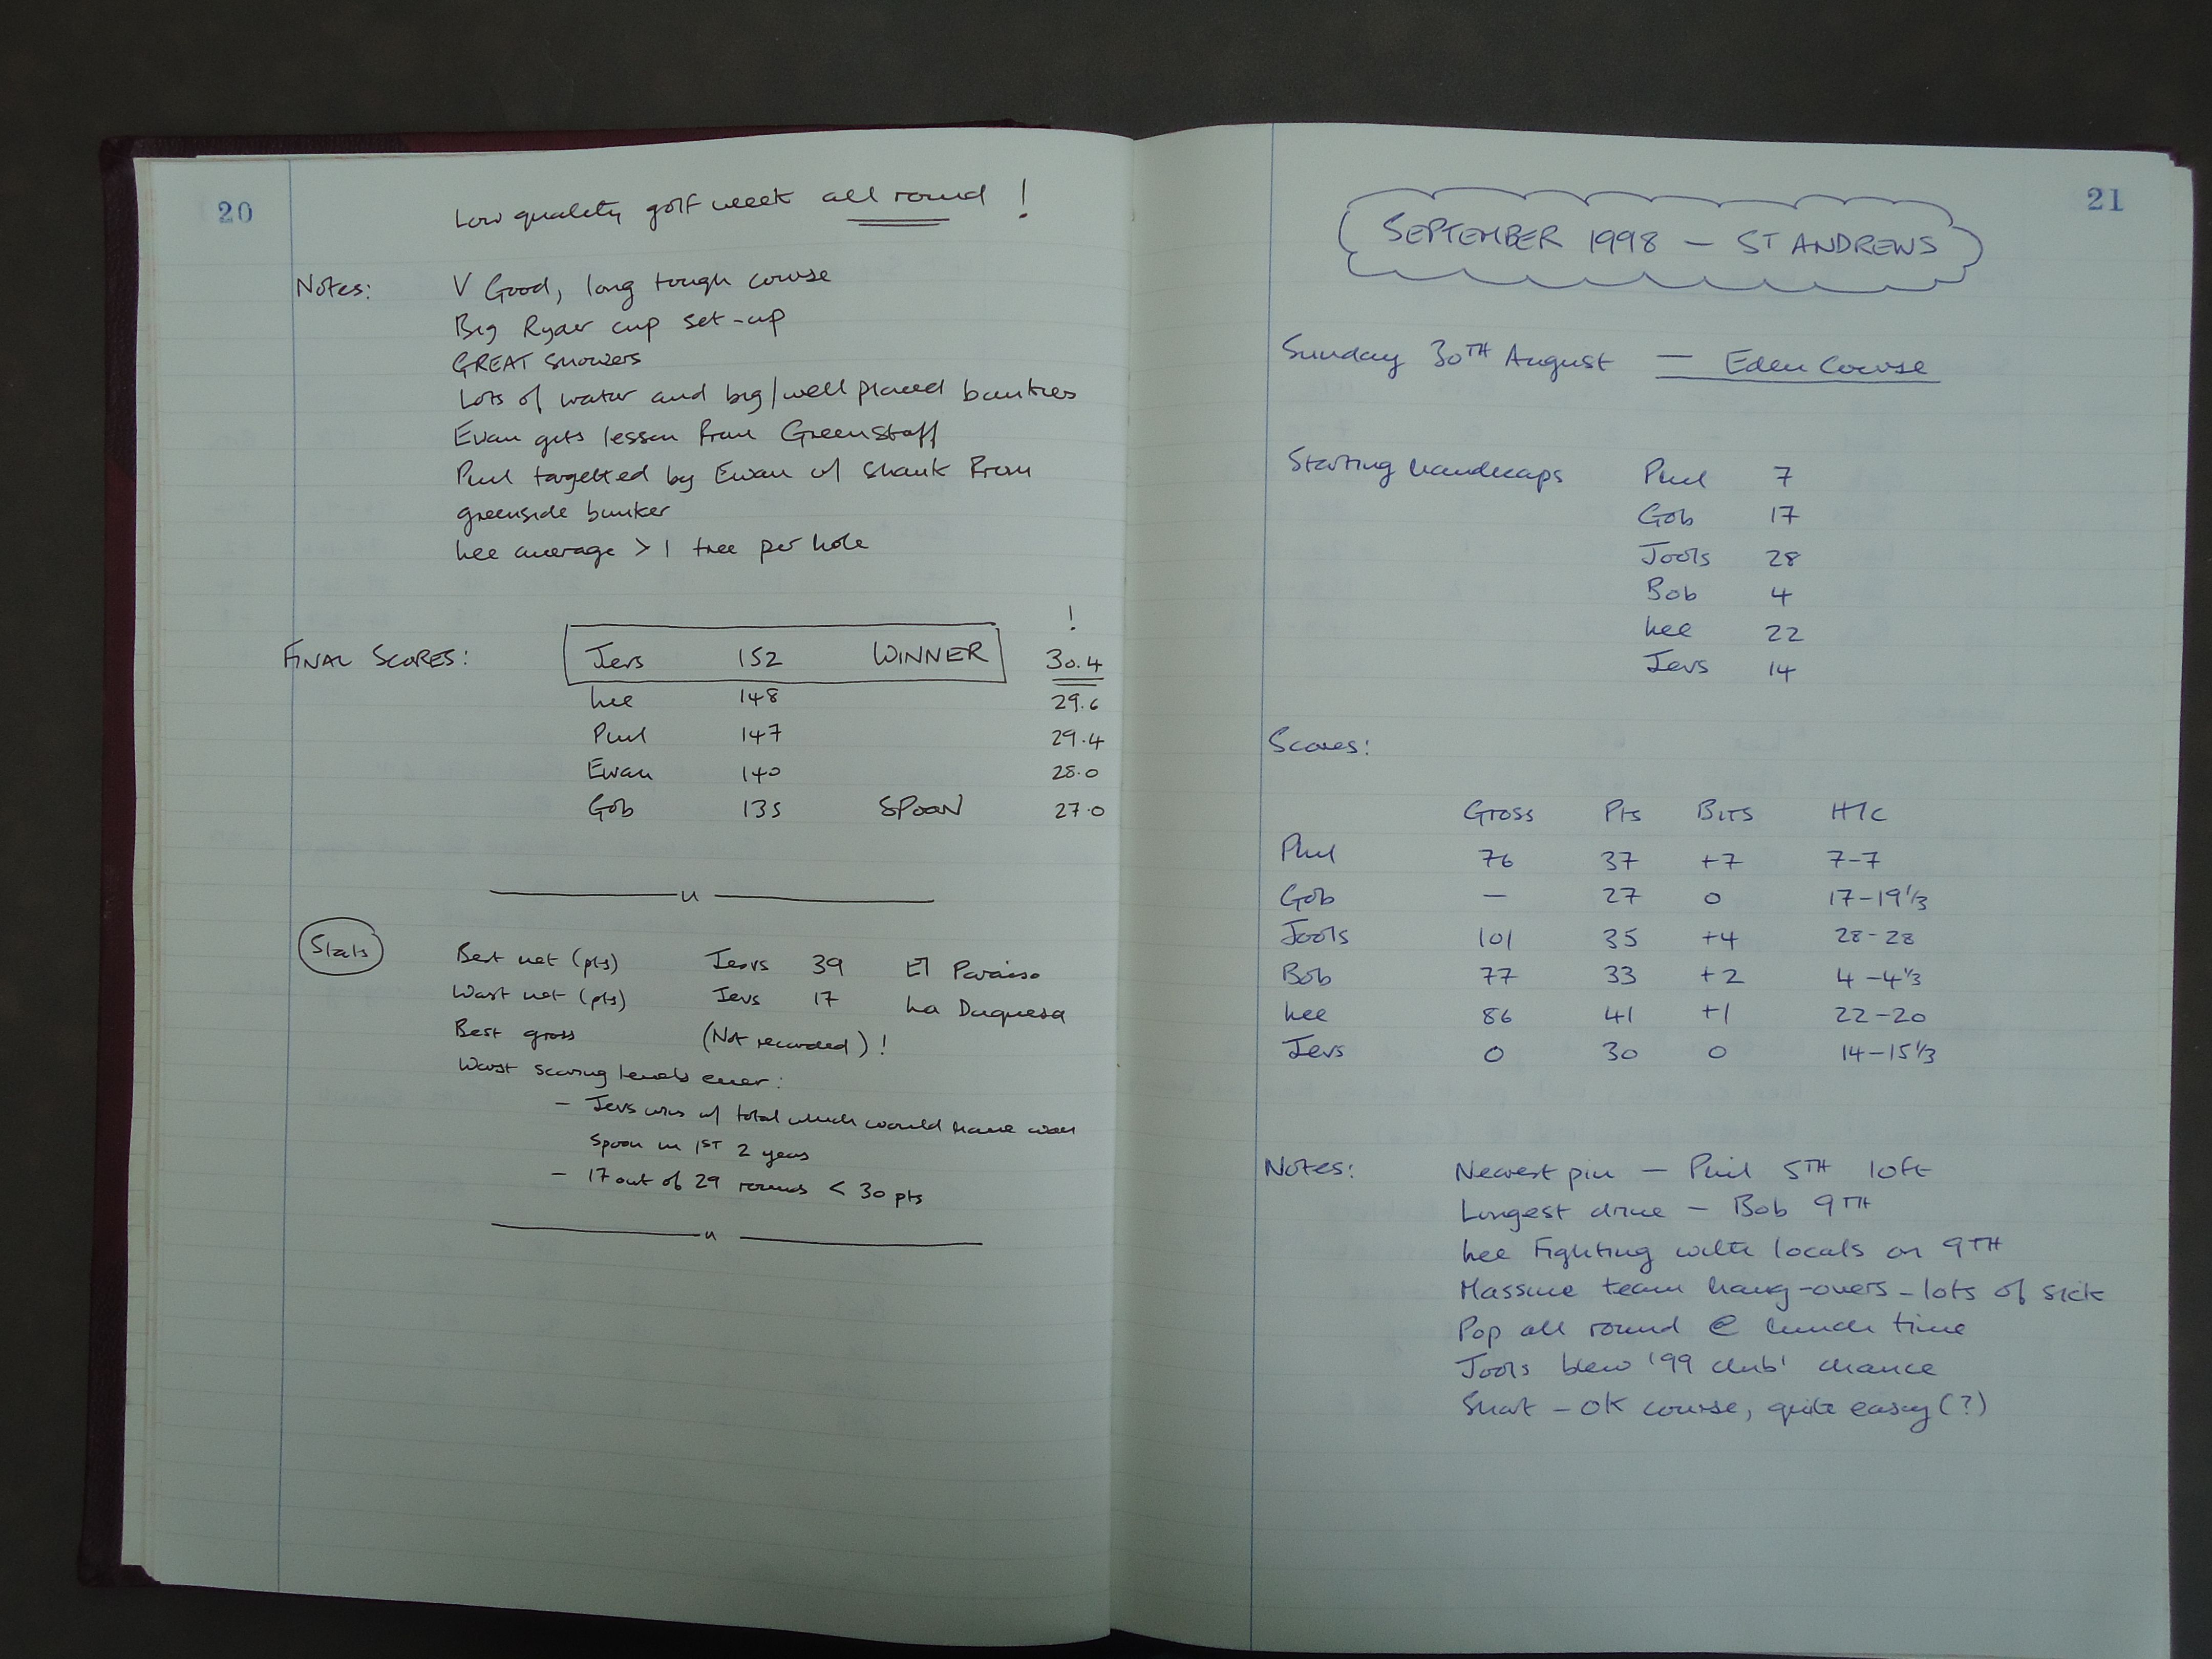 20
Low quality golf week all round !
Notes: V Good, long tough course
Big Ryder cup set-up
GREAT showers
Lots of water and big/well placed bunkers
Ewan gets lesson from Greenstaff
Phil targetted by Ewan w/ shank from
greenside bunker
Lee average > 1 tree per hole
!
FINAL SCORES: Jevs 152 WINNER 30.4
Lee 148 29.6
Phil 147 29.4
Ewan 140 28.0
Gob 135 SPOON 27.0
Stats Best net (pts) Jevs 39 El Paraiso
Worst net (pts) Jevs 17 La Duquesa
Best gross (Not recorded) !
Worst scoring levels ever:
- Jevs wins w/ total which would have won
Spoon in 1ST 2 years
- 17 out of 29 rounds < 30 pts
21
SEPTEMBER 1998 - ST ANDREWS
Sunday 30TH August - Eden Course
Starting handicaps Phil 7
Gob 17
Jools 28
Bob 4
Lee 22
Jevs 14
Scores:
Gross Pts BITS H/C
Phil 76 37 +7 7-7
Gob - 27 0 17-19 1/3
Jools 101 35 +4 28-28
Bob 77 33 +2 4-4 1/3
Lee 86 41 +1 22-20
Jevs 0 30 0 14-15 1/3
Notes: Nearest pin - Phil 5TH 10ft
Longest drive - Bob 9TH
Lee Fighting with locals on 9TH
Massive team hang-overs - lots of sick
Pop all round @ lunch time
Jools blew '99 club' chance
Short - OK course, quite easy (?)